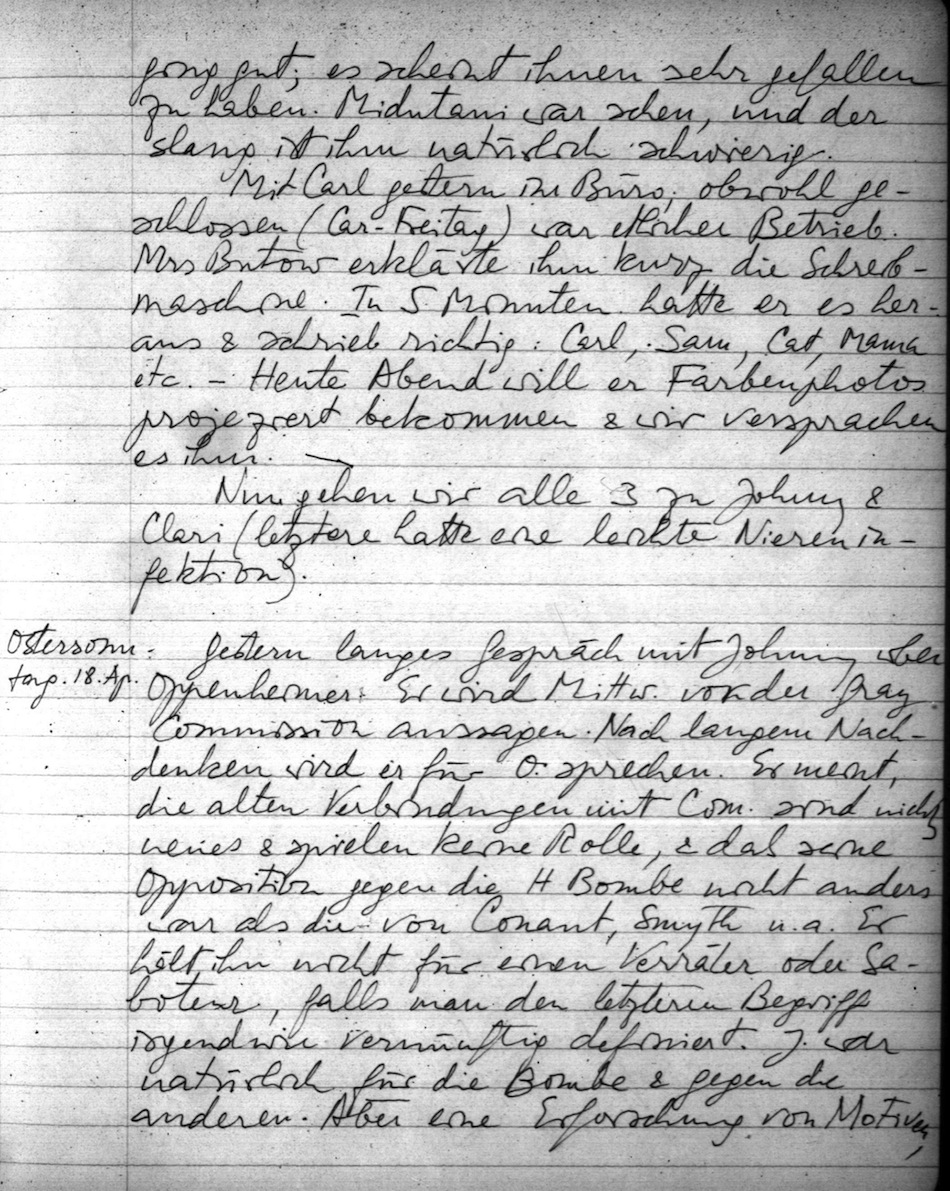 ging gut; es scheint ihnen sehr gefallen
zu haben. Midutani war scheu, und der
slang ist ihm natürlich schwierig.
Mit Carl gestern im Büro; obwohl ge-
schlossen (Car-Freitag) war etlicher Betrieb.
Mrs Butow erklärte ihm kurz die Schreib-
maschine. In 5 Minuten hatte er es her-
aus & schrieb richtig: Carl, Sam, Cat, Mama
etc. – Heute Abend will er Farbenphotos
projeziert bekommen & wir versprachen
es ihm. —
Nun gehen wir alle 3 zu Johnny &
Clari (letztere hatte eine leichte Nierenin-
fektion).
Ostersonn-
tag. 18. Ap.
Gestern langes Gespräch mit Johnny über
Oppenheimer. Er wird Mittw. vor der Gray
Commission aussagen. Nach langem Nach-
denken wird er für O. sprechen. Er meint,
die alten Verbindungen mit Com. sind nichts
neues & spielen keine Rolle, & daß seine
Opposition gegen die H Bombe nicht anders
war als die von Conant, Smyth u.a. Er
hält ihn nicht für einen Verräter oder Sa-
boteur, falls man den letzteren Begriff
irgendwie vernünftig definiert. J. war
natürlich für die Bombe & gegen die
anderen. Aber eine Erforschung von Motiven,